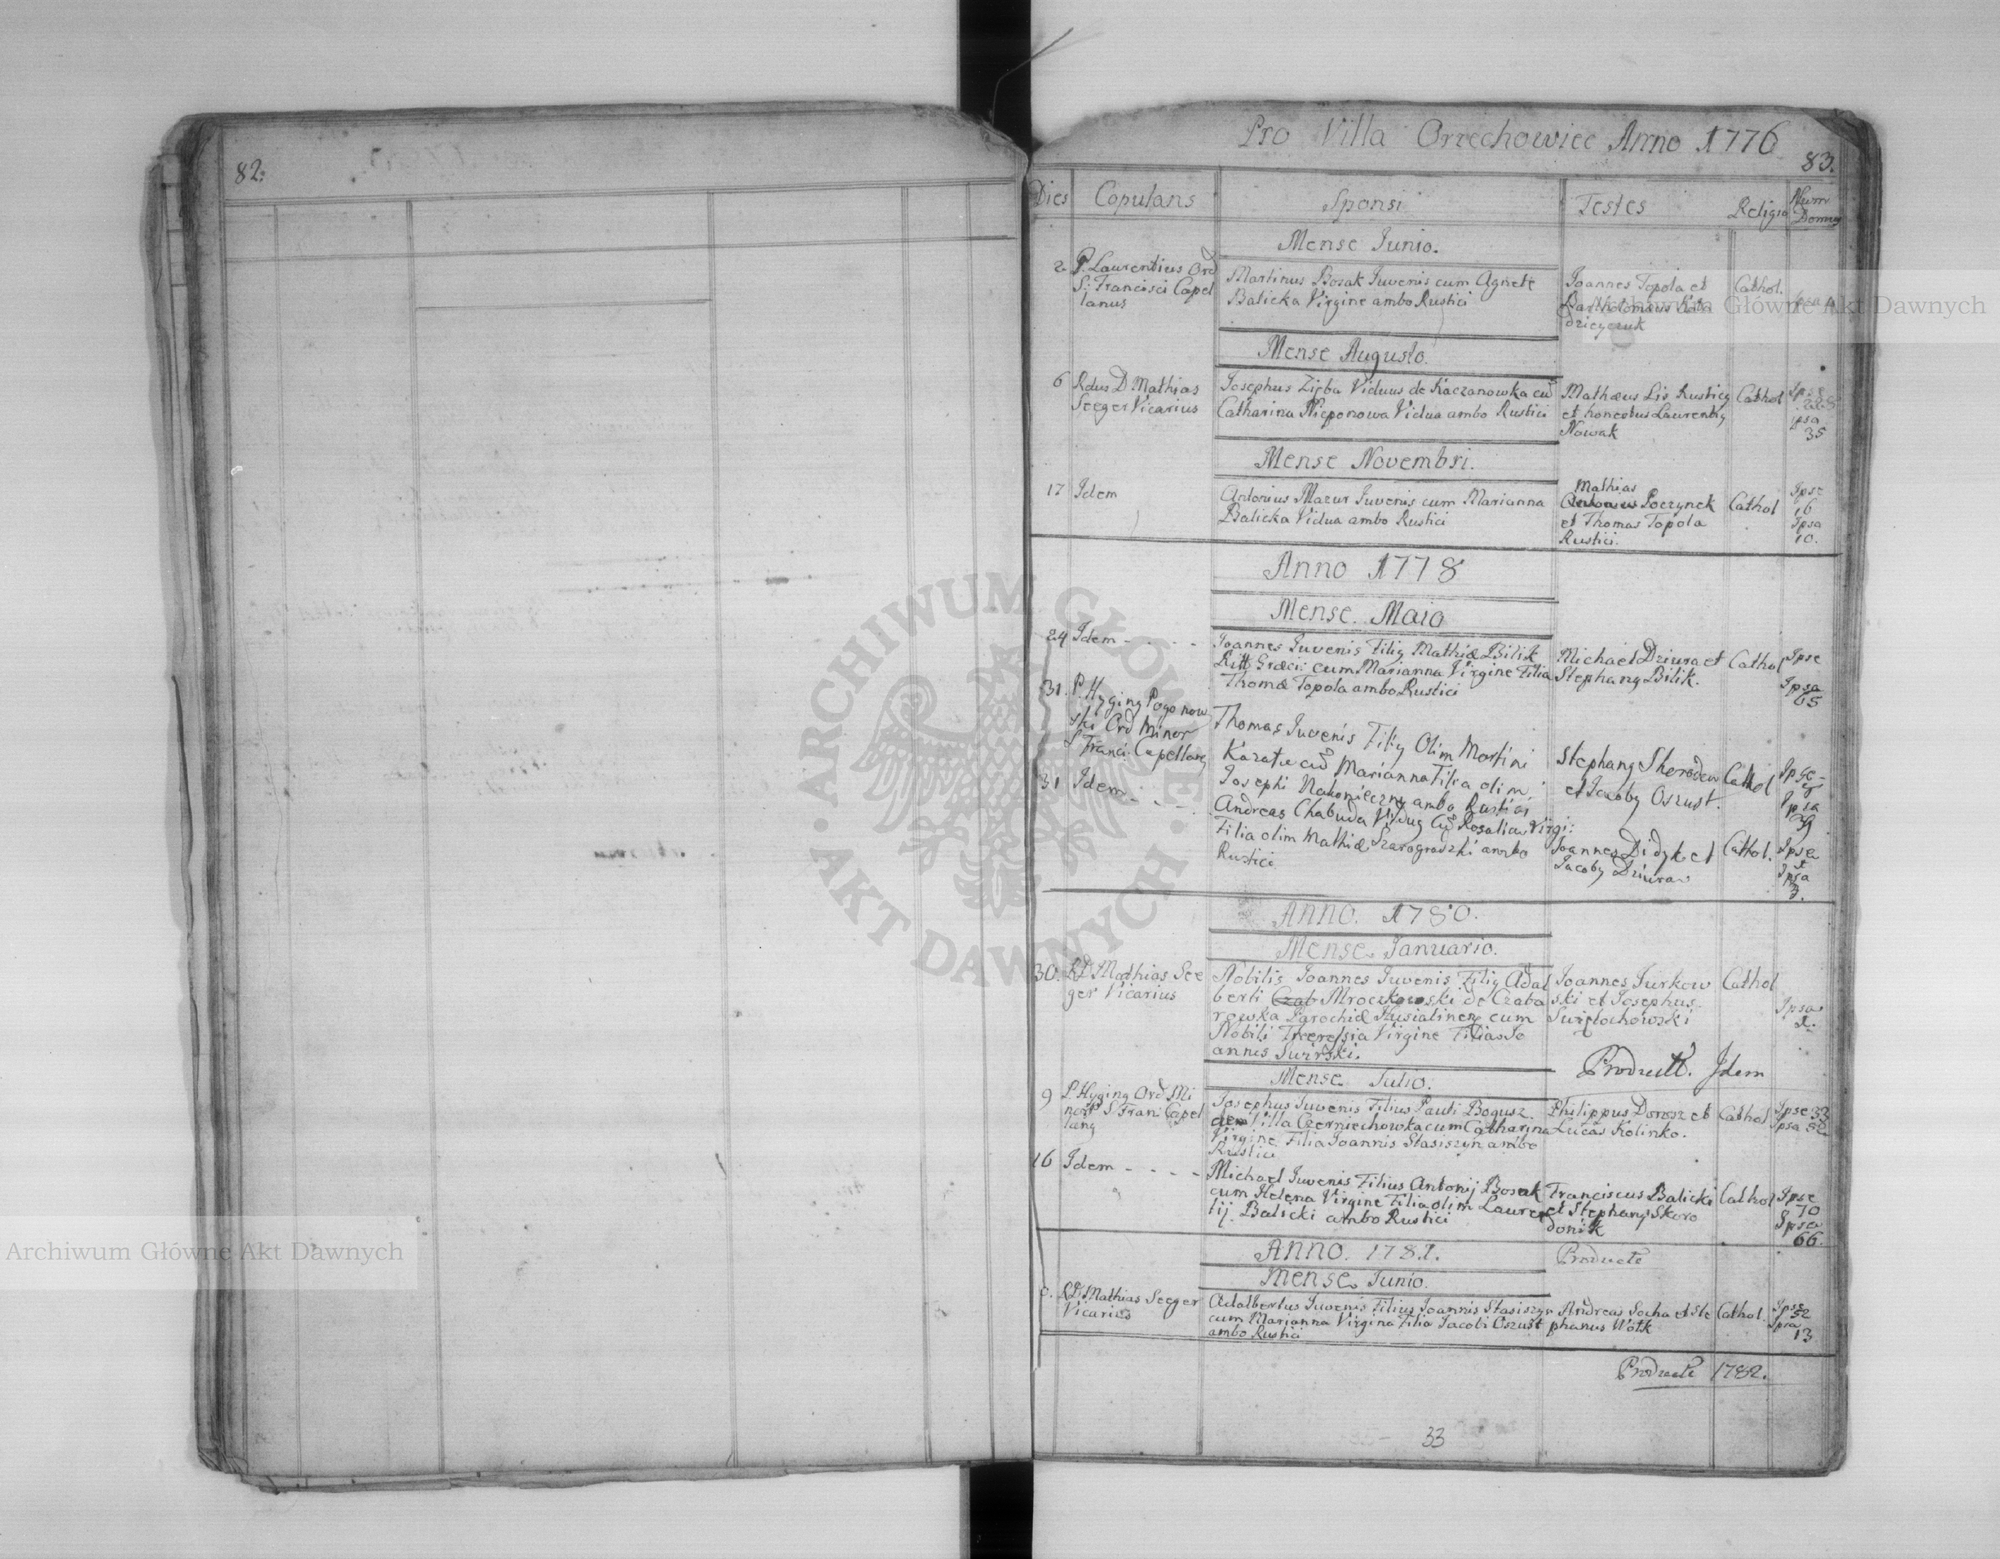 82.
Pro Villa Orzechowiec Anno 1776
83.
Dies Copulans Sponsi Testes Religio Num Domus
Mense Junio.
2 P. Laurentius Ord
S: Francisci Capel
lanus
Martinus Bosak Juvenis cum Agnete
Balicka Virgine ambo Rustici
Joannes Topola et
Bartholomæus
Cathol.
Mense Augusto.
6 Rdus D Mathias
Seeger Vicarius
Josephus Zięba Viduus de Kaczanowka cū
Catharina Vidua ambo Rustici
Mathæus Lis Rusticy
et honestus Laurenty
Nowak
Cathol
ipsa
35
Mense Novembri.
17 Idem
Antonius Mazur Juvenis cum Marianna
Balicka Vidua ambo Rustici
Mathias
Poczynek
et Thomas Topola
Rustici.
Cathol
Ipse
16
Ipsa
10.
Anno 1778
Mense Maio
24 Idem - - - -
Joannes Juvenis Filiy Mathiæ Bilik
Ritt Græci: cum Marianna Virgine Filia
Thomæ Topola ambo Rustici
Michael Dziura et
Stephany Bilik.
Cathol
Ipse
Ipsa
65
31. P. Hyginy Pogonow
ski Ord Minor
S Franci: Capellany
Thomas Juvenis Filiy Olim Martini
cū Marianna Filia olim
Josephi Nakonieczny ambo Rustici
Stephany
et Jacoby Oszust.
Cathol
Ipse
Ipsa
31 Idem - - -
Andreas Chabuda Viduy Cū Rosalia Virgi:
Filia olim Mathiæ Szarogrodzki ambo
Rustici
Joannes Didyk et
Jacoby Dziura
Cathol.
Ipse
Ipsa
3.
ANNO. 1780.
Mense Januario.
30. RD Mathias See
ger Vicarius
Nobilis Joannes Juvenis Filiy Adal
berti Czab Mroczkowski de Czaba
rowka Parochiæ Husiatinen cum
Nobili Theressia Virgine Filia Jo
annis Swirski.
Joannes Jurkow
ski et Josephus
Swiętochowski
Cathol
Ipsa
2.
Productt. Idem
Mense Julio.
9 P. Hyginy Ord Mi
nor S Frani Capel
lany
Josephus Juvenis Filius Pauli Bogusz
de Villa Czerniechowka cum Catharina
Virgine Filia Joannis Stasiszyn ambo
Rustici
Philippus Dorosz et
Lucas Kolinko.
Cathol
Ipse 33
Ipsa 52
16 Idem - - - -
Michael Juvenis Filius Antonij Bosak
cum Helena Virgine Filia olim Lauren
tij Balicki ambo Rustici
Franciscus Balicki
et Stephany Skoro
donik
Cathol
Ipse
70
Ipsa
66.
ANNO. 1782.
Producte
Mense Junio.
RD Mathias Seeger
Vicarius
Adalbertus Juvenis Filius Joannis Stasiszyn
cum Marianna Virgine Filia Jacobi Oszust
ambo Rustici
Andreas Socha et Ste
phanus Wolk
Cathol.
Ipse
52
Ipsa
13
Producte 1782.
33
ARCHIWUM GŁÓWNE AKT DAWNYCH
Archiwum Główne Akt Dawnych
Archiwum Główne Akt Dawnych